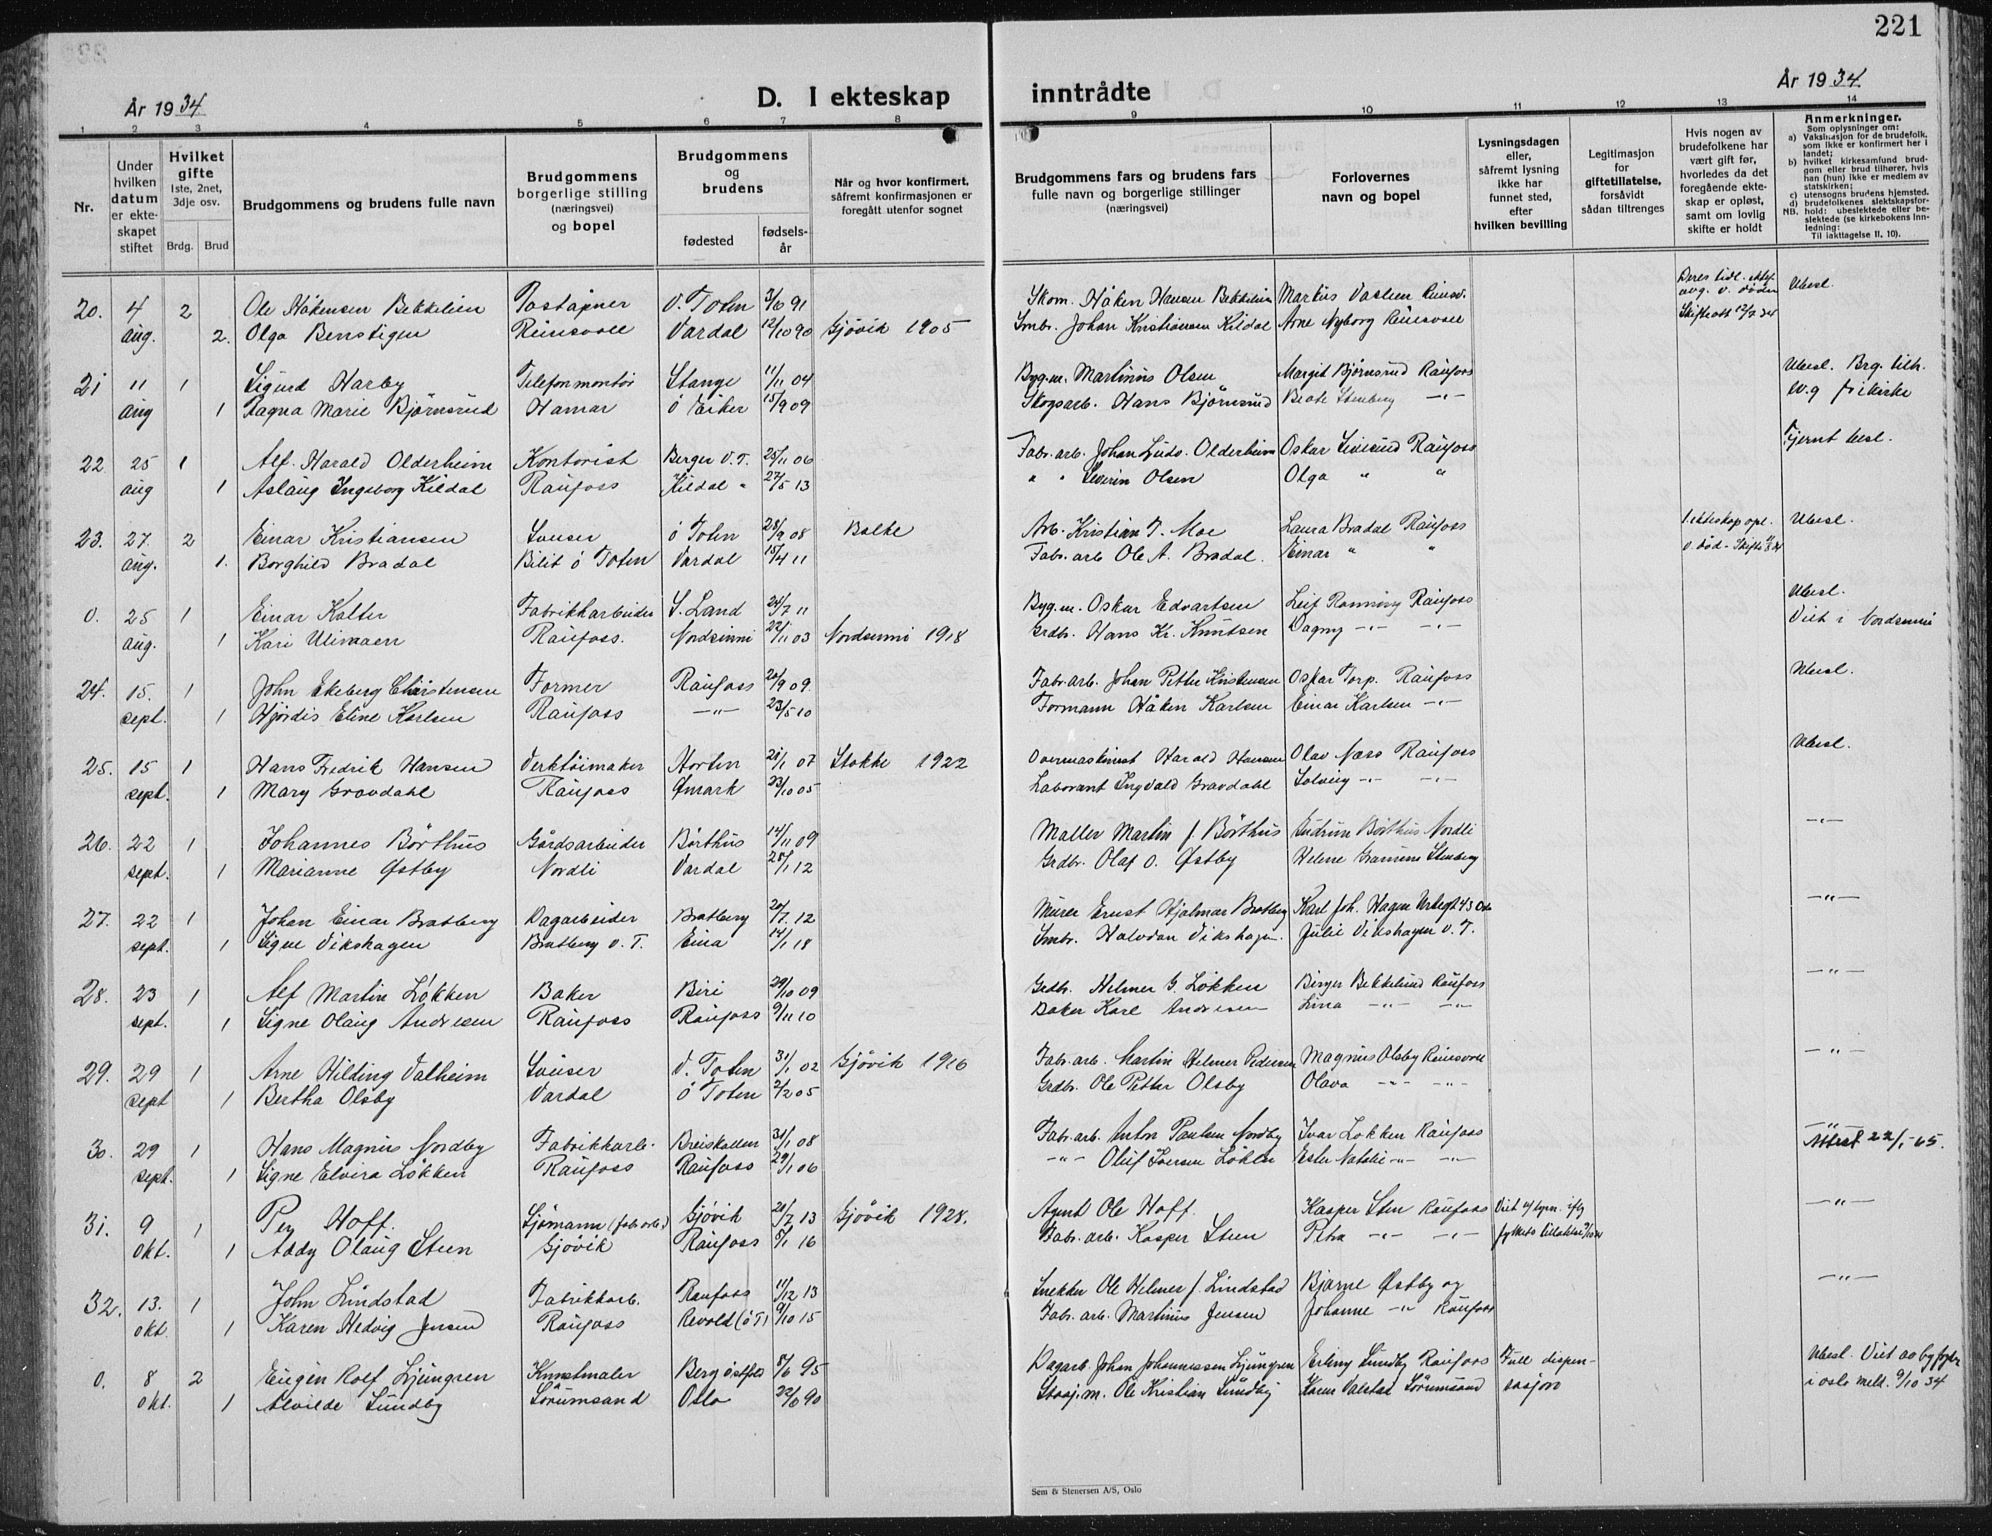 221
År 1934
År 1934
D. I ekteskap inntrådte
1 2 3 4 5 6 7 8 9 10 11 12 13 14
Nr.
Under hvilken datum er ekteskapet stiftet
Hvilket gifte
1ste, 2net, 3dje osv.
Brdg. Brud
Brudgommens og brudens fulle navn
Brudgommens borgerlige stilling (næringsvei) og bopel
Brudgommens og brudens
fødested fødselsår
Når og hvor konfirmert, såfremt konfirmasjonen er foregått utenfor sognet
Brudgommens fars og brudens fars fulle navn og borgerlige stillinger (næringsvei)
Forlovernes navn og bopel
Lysningsdagen eller, såfremt lysning ikke har funnet sted, efter hvilken bevilling
Legitimasjon for giftetillatelse, forsåvidt sådan tiltrenges
Hvis nogen av brudefolkene har vært gift før, hvorledes da det foregående ekteskap er opløst, samt om lovlig skifte er holdt
Anmerkninger.
Som oplysninger om:
a) Vaksinasjon for de brudefolk, som ikke er konfirmert her i landet;
b) hvilket kirkesamfund brudgom eller brud tilhører, hvis han (hun) ikke er medlem av statskirken;
c) utensogns brudens hjemsted.
d) brudefolkenes slektskapsforhold: ubeslektede eller beslektede (se kirkebokens Innledning:
NB. Til iakttagelse II, 10).
20. 4 2 Ole Håkensen Bekkelien Poståpner V. Toten 3/6 91 Skom. Håken Hansen Bekkelien Markus Vastun Reinsv. Ubesl.
aug. 2. Olga Benstigen Reinsvoll Vardal 12/10 90 Gjøvik 1905 Smbr. Johan Kristiansen Kildal Arne Nyborg Reinsvoll Skifteatt 12/7 34
21 11 1 Sigurd Harby Telefonmontør Stange 11/11 04 Byg.m. Martinus Olsen Margit Bjørnsrud Raufoss Ubesl. Brg. tilh.
aug 1 Ragna Marie Bjørnsrud Hamar ö Eiker 15/9 09 Skogsarb. Hans Bjørnsrud Beate Stenberg -"- frikirke
22 25 1 Alf Harald Olderheim Kontorist Berger V.T. 25/11 06 Fabr. arb. Johan Ludv. Olderheim Oskar Raufoss Fjernt besl.
aug 1 Aslaug Ingeborg Kildal Raufoss Kildal " 27/5 13 " " Severin Olsen Olga " "
23. 27. 2 Einar Kristiansen Sveiser ö Toten 28/9 08 Balke Arb. Kristian J. Moe Laura Bradal Raufoss 1. ekteskap opl. Ubesl.
aug. 1. Borghild Bradal Bilit ö Toten Vardal 15/4 11 Fabr. arb Ole A. Bradal. Einar " " v. død - Skifte
0. 25 1 Einar Kalter Fabrikkarbeider S. Land 24/7 11 Byg.m. Oskar Edvartsen Leif Rønning Raufoss Ubesl.
aug. 1 Kari Ulimoen Raufoss. Nordsinni 22/11 03 Nordsinni 1918 Grdbr. Hans Kr. Knutsen Dagny -"- -"- Viet i Nordsinni
24. 15. 1 John Ekeberg Christensen Former Raufoss 20/9 09. Fabr. arb. Johan Petter Kristensen Oskar Torp. Raufoss Ubesl.
sept. 1 Hjørdis Eline Karlsen Raufoss -"- 23/5 10 Formann Håken Karlsen Einar Karlsen -"-
25. 15 1 Hans Fredrik Hansen Verktøimaker Horten 21/1 07 Stokke 1922 Overmaskinist Harald Hansen Olav Næss Raufoss Ubesl.
sept. 1 Mary Gravdahl Raufoss Ømark 23/10 05 Laborant Ingvald Gravdahl Solveig -"- -"-
26. 22 1 Johannes Börthus Gårdsarbeider Börthus 14/11 09 Møller Martin J. Börthus Gudrun Börthus Nordli -"-
sept. 1 Marianne Østby Nordli Vardal 28/1 12 Grdbr. Olaf O. Østby Helene Stenberg
27. 22 1 Johan Einar Bratberg Dagarbeider Bratberg 20/7. 12 Murer Ernst Hjalmar Bratberg Karl Joh. Hagen -"-
sept. 1 Signe Vikshagen Bratberg V. T. Eina 14/1 18 Smbr. Halvdan Vikshagen. Julie Vikshagen V. T.
28. 23 1 Alf Martin Løkken Baker Biri 29/10 09 Grdbr. Helmer G. Løkken Birger Bekkelund Raufoss -"-
sept. 1 Signe Olaug Andresen Raufoss Raufoss 9/11 10 Baker Karl Andresen Lina -"- -"-
29. 29 1 Arne Hilding Valheim Sveiser V. Toten 31/1 02 Gjøvik 1916 Fabr. arb. Martin Helmer Pedersen Magnus Olsby Reinsvoll -"-
sept 1 Bertha Olsby Vardal ö Toten 2/2 05 Grdbr. Ole Petter Olsby Olava -"- -"-
30. 29 1 Hans Magnus Nordby Fabrikkarb. Breiskallen 31/1 08 Fabr. arb. Anton Paulsen Nordby Ivar Løkken Raufoss -"-
sept. 1 Signe Elvira Løkken Raufoss Raufoss 29/1 06 -"- Oluf Iversen Løkken Ester Natalie -"- -"- Attest 22/1-65.
31. 9 1 Per Hoff. Sjømann (fabr. arb.) Gjøvik 21/7 13 Gjøvik 1928. Agent Ole Hoff. Kasper Sten Raufoss Viet u/ lysn. ifg -"-
okt. 1 Addy Olaug Steen Gjøvik Raufoss 5/1 16 Fabr. arb. Kasper Steen Petra -"- -"- fylkets tillatelse
32. 13. 1 John Lindstad Fabrikkarb. Raufoss 11/12 13 Snekker Ole Helmer J. Lindstad Bjarne Østby og -"-
okt. 1 Karen Hedvig Jensen Raufoss Revold (ö T) 9/10 15 Fabr. arb. Martinus Jensen Johanne -"- Raufoss
0. 8 2 Eugen Rolf Ljungren Kunstmaler Berg Østfold 8/6 95 Dagarb. Johan Johannessen Ljungren Erling Sundby Raufoss Full dispen- Ubesl. Viet av byfogden
okt. 1 Alvilde Sundby Sørumsand Oslo 22/6 90 Stasj.m. Ole Kristian Sundby Karen Valstad Sørumsand sasjon i Oslo meld. 9/10 34
Sem & Stenersen A/S, Oslo